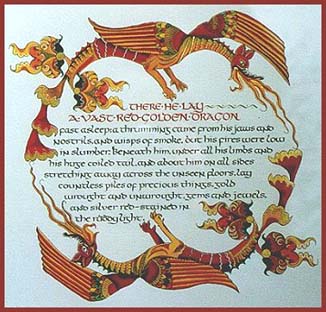 THERE HE LAY
A·VAST·RED·GOLDEN·DRAGON
fast asleep; a thrumming came from his jaws and
nostrils, and wisps of smoke, but his fires were low
in slumber. Beneath him, under all his limbs and
his huge coiled tail, and about him on all sides
stretching away across the unseen floors, lay
countless piles of precious things, gold
wrought and unwrought, gems and jewels,
and silver red-stained in
the ruddy light.